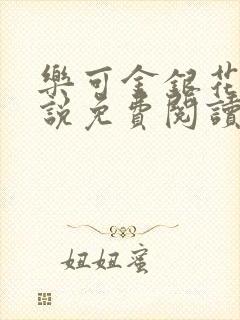 樂可金銀花
說免費閱讀
妞妞蜜